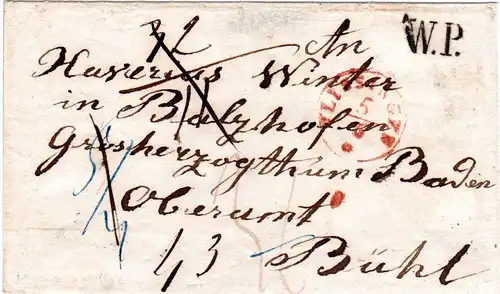 32 An
W.P.
Xaverius Winter
in Balzhofen
Grosherzogthum Baden
Oberamt
Bühl
43